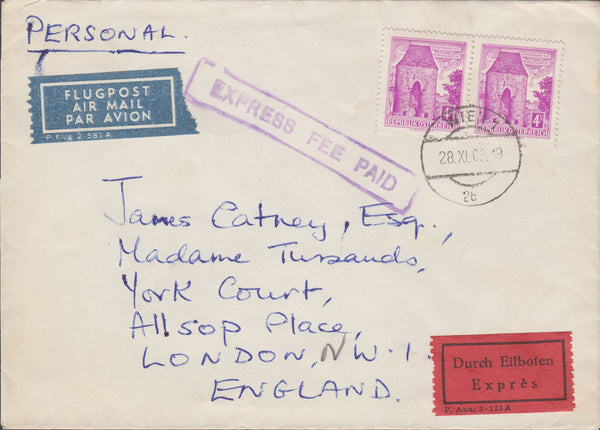 PERSONAL.
FLUGPOST
AIR MAIL
PAR AVION
EXPRESS FEE PAID
REPUBLIK ÖSTERREICH
REPUBLIK ÖSTERREICH
4
28.XI.
19
2b
James Catney, Esq.,
Madame Tussauds,
York Court,
Allsop Place,
LONDON, N.W.1.
ENGLAND.
Durch Eilboten
Exprès
P. Ann. 2-123A